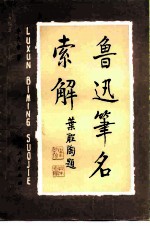 魯迅筆名
索解
葉聖陶題
LUXUN BIMING SUOJIE